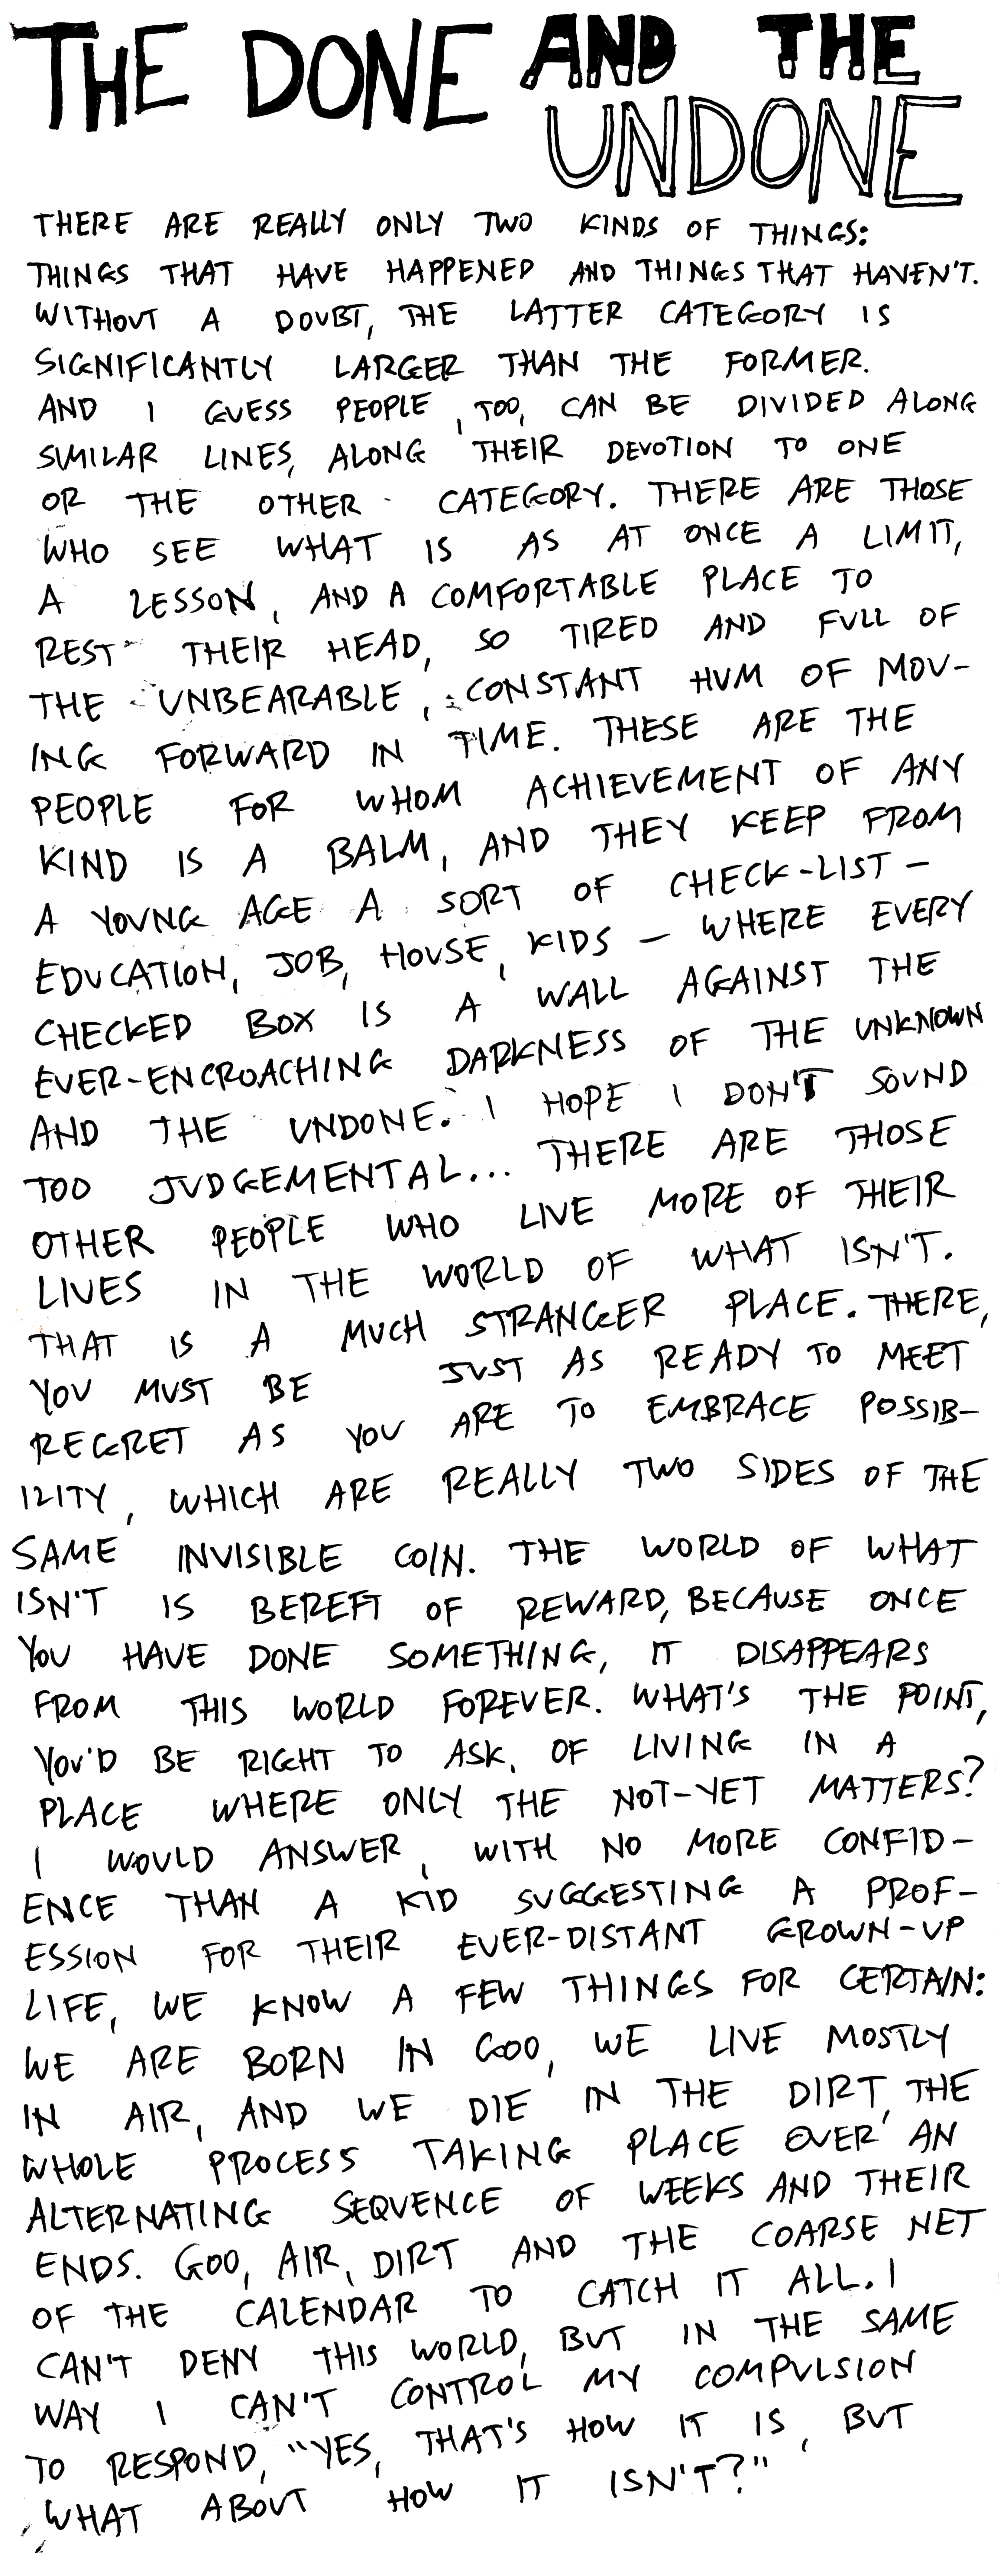 THE DONE AND THE
UNDONE
THERE ARE REALLY ONLY TWO KINDS OF THINGS:
THINGS THAT HAVE HAPPENED AND THINGS THAT HAVEN'T.
WITHOUT A DOUBT, THE LATTER CATEGORY IS
SIGNIFICANTLY LARGER THAN THE FORMER.
AND I GUESS PEOPLE, TOO, CAN BE DIVIDED ALONG
SIMILAR LINES, ALONG THEIR DEVOTION TO ONE
OR THE OTHER CATEGORY. THERE ARE THOSE
WHO SEE WHAT IS AS AT ONCE A LIMIT,
A LESSON, AND A COMFORTABLE PLACE TO
REST THEIR HEAD, SO TIRED AND FULL OF
THE UNBEARABLE, CONSTANT HUM OF MOV-
ING FORWARD IN TIME. THESE ARE THE
PEOPLE FOR WHOM ACHIEVEMENT OF ANY
KIND IS A BALM, AND THEY KEEP FROM
A YOUNG AGE A SORT OF CHECK-LIST –
EDUCATION, JOB, HOUSE, KIDS – WHERE EVERY
CHECKED BOX IS A WALL AGAINST THE
EVER-ENCROACHING DARKNESS OF THE UNKNOWN
AND THE UNDONE. I HOPE I DON'T SOUND
TOO JUDGEMENTAL... THERE ARE THOSE
OTHER PEOPLE WHO LIVE MORE OF THEIR
LIVES IN THE WORLD OF WHAT ISN'T.
THAT IS A MUCH STRANGER PLACE. THERE,
YOU MUST BE JUST AS READY TO MEET
REGRET AS YOU ARE TO EMBRACE POSSIB-
ILITY, WHICH ARE REALLY TWO SIDES OF THE
SAME INVISIBLE COIN. THE WORLD OF WHAT
ISN'T IS BEREFT OF REWARD, BECAUSE ONCE
YOU HAVE DONE SOMETHING, IT DISAPPEARS
FROM THIS WORLD FOREVER. WHAT'S THE POINT,
YOU'D BE RIGHT TO ASK, OF LIVING IN A
PLACE WHERE ONLY THE NOT-YET MATTERS?
I WOULD ANSWER, WITH NO MORE CONFID-
ENCE THAN A KID SUGGESTING A PROF-
ESSION FOR THEIR EVER-DISTANT GROWN-UP
LIFE, WE KNOW A FEW THINGS FOR CERTAIN:
WE ARE BORN IN GOO, WE LIVE MOSTLY
IN AIR, AND WE DIE IN THE DIRT, THE
WHOLE PROCESS TAKING PLACE OVER AN
ALTERNATING SEQUENCE OF WEEKS AND THEIR
ENDS. GOO, AIR, DIRT AND THE COARSE NET
OF THE CALENDAR TO CATCH IT ALL. I
CAN'T DENY THIS WORLD, BUT IN THE SAME
WAY I CAN'T CONTROL MY COMPULSION
TO RESPOND, "YES, THAT'S HOW IT IS, BUT
WHAT ABOUT HOW IT ISN'T?"